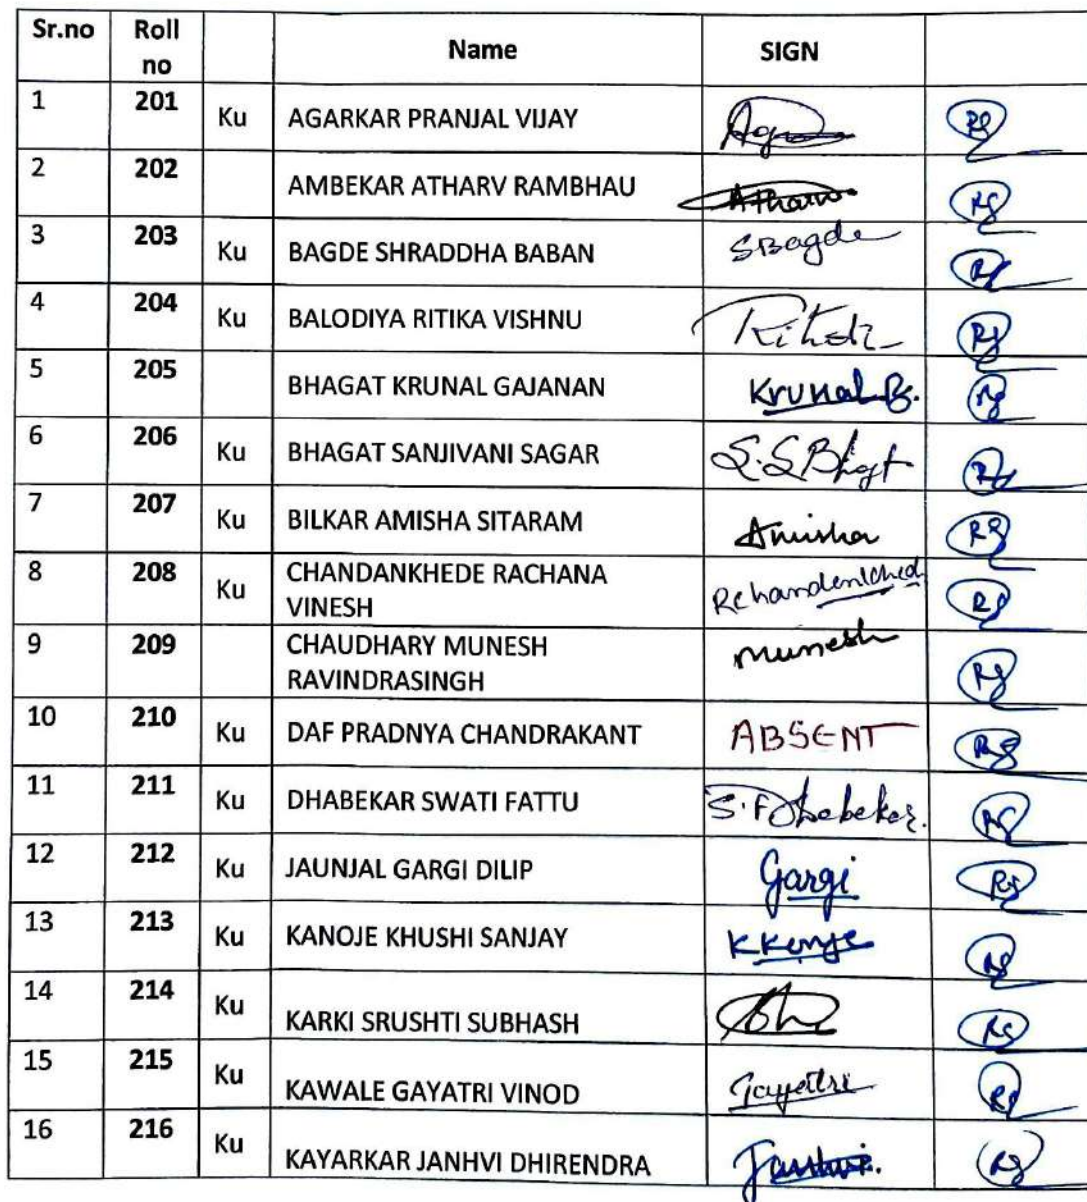 Sr.no Roll no Name SIGN
1 201 Ku AGARKAR PRANJAL VIJAY
2 202 AMBEKAR ATHARV RAMBHAU Atharv
3 203 Ku BAGDE SHRADDHA BABAN SBagde
4 204 Ku BALODIYA RITIKA VISHNU
5 205 BHAGAT KRUNAL GAJANAN Krunal B.
6 206 Ku BHAGAT SANJIVANI SAGAR S.S Bhagt
7 207 Ku BILKAR AMISHA SITARAM Amisha
8 208 Ku CHANDANKHEDE RACHANA
VINESH
9 209 CHAUDHARY MUNESH munesh
RAVINDRASINGH
10 210 Ku DAF PRADNYA CHANDRAKANT ABSENT
11 211 Ku DHABEKAR SWATI FATTU S.F Dhabekar.
12 212 Ku JAUNJAL GARGI DILIP Gargi
13 213 Ku KANOJE KHUSHI SANJAY
14 214 Ku KARKI SRUSHTI SUBHASH
15 215 Ku KAWALE GAYATRI VINOD Gayatri
16 216 Ku KAYARKAR JANHVI DHIRENDRA